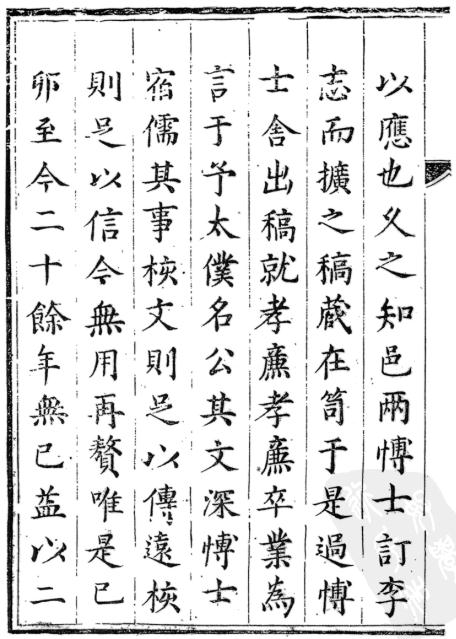 以應也久之知邑兩愽士訂李
志而擴之稿藏在笥于是過愽
士舍出稿就孝廉孝廉卒業為
言于予太僕名公其文深愽士
宿儒其事核文則足以傳遠核
則足以信今無用再贅唯是已
卯至今二十餘年無已益以二